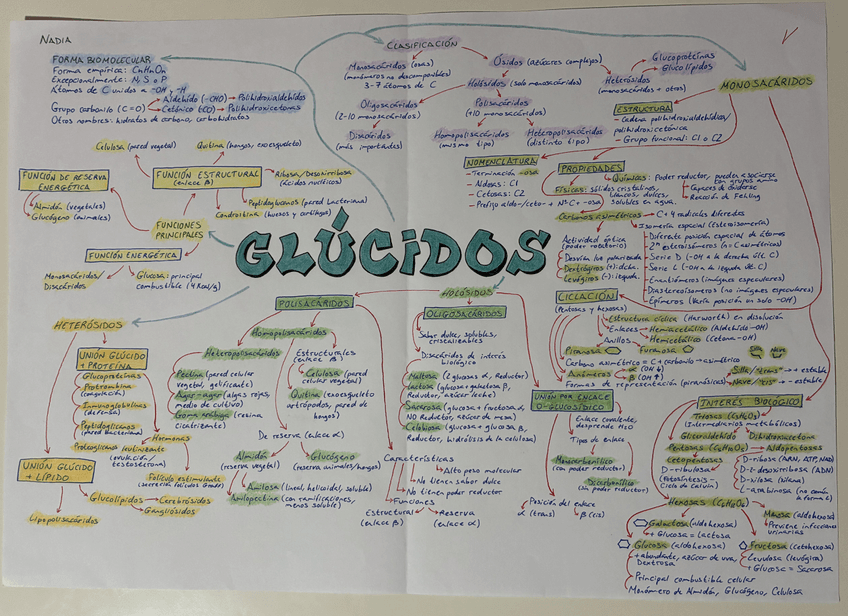 NADIA
FORMA BIOMOLECULAR
Forma empírica: CnHnOn
Excepcionalmente: N, S o P
Átomos de C unidos a -OH y -H
Grupo carbonilo (C=O)
Aldehído (-CHO)
Polihidroxialdehídos
Cetónico (CO)
Polihidroxicetonas
Otros nombres: hidratos de carbono, carbohidratos
CLASIFICACIÓN
Monosacáridos (osas)
(monómeros no descomponibles)
3-7 átomos de C
Ósidos (azúcares complejos)
Holósidos (solo monosacáridos)
Heterósidos
(monosacáridos + otros)
Glucoproteínas
Glucolípidos
Oligosacáridos
(2-10 monosacáridos)
Disacáridos
(más importantes)
Polisacáridos
(+10 monosacáridos)
Homopolisacáridos
(mismo tipo)
Heteropolisacáridos
(distinto tipo)
MONOSACÁRIDOS
ESTRUCTURA
- Cadena polihidroxialdehídica/
polihidroxicetónica
- Grupo funcional: C1 o C2
NOMENCLATURA
- Terminación -osa
- Aldosas: C1
- Cetosas: C2
- Prefijo aldo-/ceto- + Nº C + -osa
PROPIEDADES
Químicas: Poder reductor, pueden asociarse
con grupos amino
Capaces de oxidarse
Reacción de Fehling
Físicas: sólidos cristalinos,
blancos, dulces,
solubles en agua.
Carbonos asimétricos
C + 4 radicales diferentes
Isomería espacial (Estereoisomería)
- Diferente posición espacial de átomos
- 2ⁿ estereoisómeros (n = C asimétricos)
- Serie D (-OH a la derecha últ. C)
- Serie L (-OH a la izquierda últ. C)
- Enantiómeros (imágenes especulares)
- Diastereoisómeros (no imágenes especulares)
- Epímeros (Varía posición un solo -OH)
Actividad óptica
(poder rotatorio)
Desvían luz polarizada
Dextrógiros (+): dcha.
Levógiros (-): izquierda
CICLACIÓN
(Pentosas y hexosas)
Estructura cíclica (Haworth) en disolución
Enlaces
Hemiacetálico (Aldehído -OH)
Hemicetálico (Cetona -OH)
Anillos
Piranosa
Furanosa
Carbono asimétrico = C + carbonilo → asimétrico
Anómeros
α (OH ↓)
β (OH ↑)
Formas de representación (piranósicas)
Silla
Nave
Silla/"trans" → + estable
Nave/"cis" → - estable
INTERÉS BIOLÓGICO
Triosas (C₃H₆O₃)
(Intermediarios metabólicos)
Gliceraldehído
Dihidroxiacetona
Pentosas (C₅H₁₀O₅)
Aldopentosas
Cetopentosas
D-ribulosa
(Fotosíntesis -
Ciclo de Calvin)
D-ribosa (ARN, ATP, NAD)
D-2-desoxirribosa (ADN)
D-xilosa (xilana)
Hexosas (C₆H₁₂O₆)
Galactosa (aldohexosa)
+ Glucosa = Lactosa
Manosa (aldohexosa)
Previene infecciones
urinarias
Glucosa (aldohexosa)
+ abundante, azúcar de uva,
Dextrosa
Principal combustible celular
Monómero de Almidón, Glucógeno, Celulosa
Fructosa (cetohexosa)
Levulosa (levógira)
+ Glucosa = Sacarosa
Celulosa (pared vegetal)
Quitina (hongos, exoesqueleto)
FUNCIÓN DE RESERVA
ENERGÉTICA
Almidón (vegetales)
Glucógeno (animales)
FUNCIÓN ESTRUCTURAL
(enlace β)
Ribosa/Desoxirribosa
(Ácidos nucleicos)
Peptidoglucanos (pared bacteriana)
Condroitina (huesos y cartílagos)
FUNCIONES
PRINCIPALES
FUNCIÓN ENERGÉTICA
Monosacáridos/
Disacáridos
Glucosa: principal
combustible (4 Kcal/g)
GLÚCIDOS
HETERÓSIDOS
UNIÓN GLÚCIDO
+ PROTEÍNA
Glucoproteínas
Protrombina
(coagulación)
Inmunoglobulinas
(defensa)
Peptidoglucanos
(pared bacteriana)
Proteoglucanos
Hormonas
luteinizante
(ovulación/
testosterona)
Folículo estimulante
UNIÓN GLÚCIDO
+ LÍPIDO
Glucolípidos
Cerebrósidos
Gangliósidos
Lipopolisacáridos
HOLÓSIDOS
POLISACÁRIDOS
Homopolisacáridos
Heteropolisacáridos
Pectina (pared celular
vegetal, gelificante)
Agar-agar (algas rojas,
medio de cultivo)
Goma arábiga (resina
cicatrizante)
Estructurales
(enlace β)
Celulosa (pared
celular vegetal)
Quitina (exoesqueleto
artrópodos, pared de
hongos)
De reserva (enlace α)
Almidón
(reserva vegetal)
Glucógeno
(reserva animales/hongos)
Amilosa (lineal, helicoidal, soluble)
Amilopectina (con ramificaciones,
menos soluble)
Características
Alto peso molecular
No tienen sabor dulce
No tienen poder reductor
Funciones
Estructural
(enlace β)
Reserva
(enlace α)
OLIGOSACÁRIDOS
Sabor dulce, solubles,
cristalizables
Disacáridos de interés
biológico
Maltosa (2 glucosas α, Reductor)
Lactosa (glucosa + galactosa β,
Reductor, azúcar leche)
Sacarosa (glucosa + fructosa α,
NO Reductor, azúcar de mesa)
Celobiosa (glucosa + glucosa β,
Reductor, hidrólisis de la celulosa)
UNIÓN POR ENLACE
O-GLUCOSÍDICO
Enlace covalente,
desprende H₂O
Tipos de enlace
Monocarbonílico
(con poder reductor)
Dicarbonílico
(sin poder reductor)
Posición del enlace
α (trans)
β (cis)